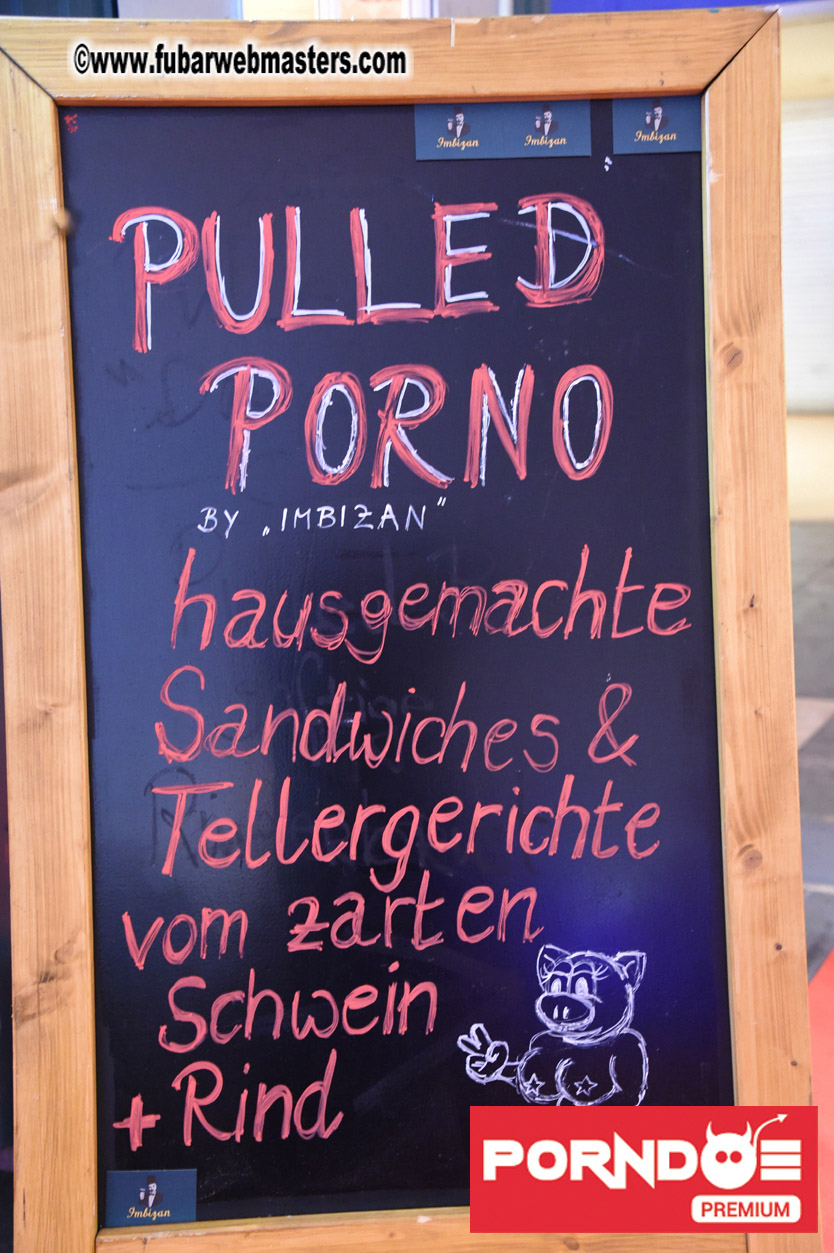 ©www.fubarwebmasters.com
Imbizan Imbizan Imbizan
PULLED
PORNO
BY „IMBIZAN"
hausgemachte
Sandwiches &
Tellergerichte
vom zarten
Schwein
+ Rind
PORNDOE
PREMIUM
Imbizan